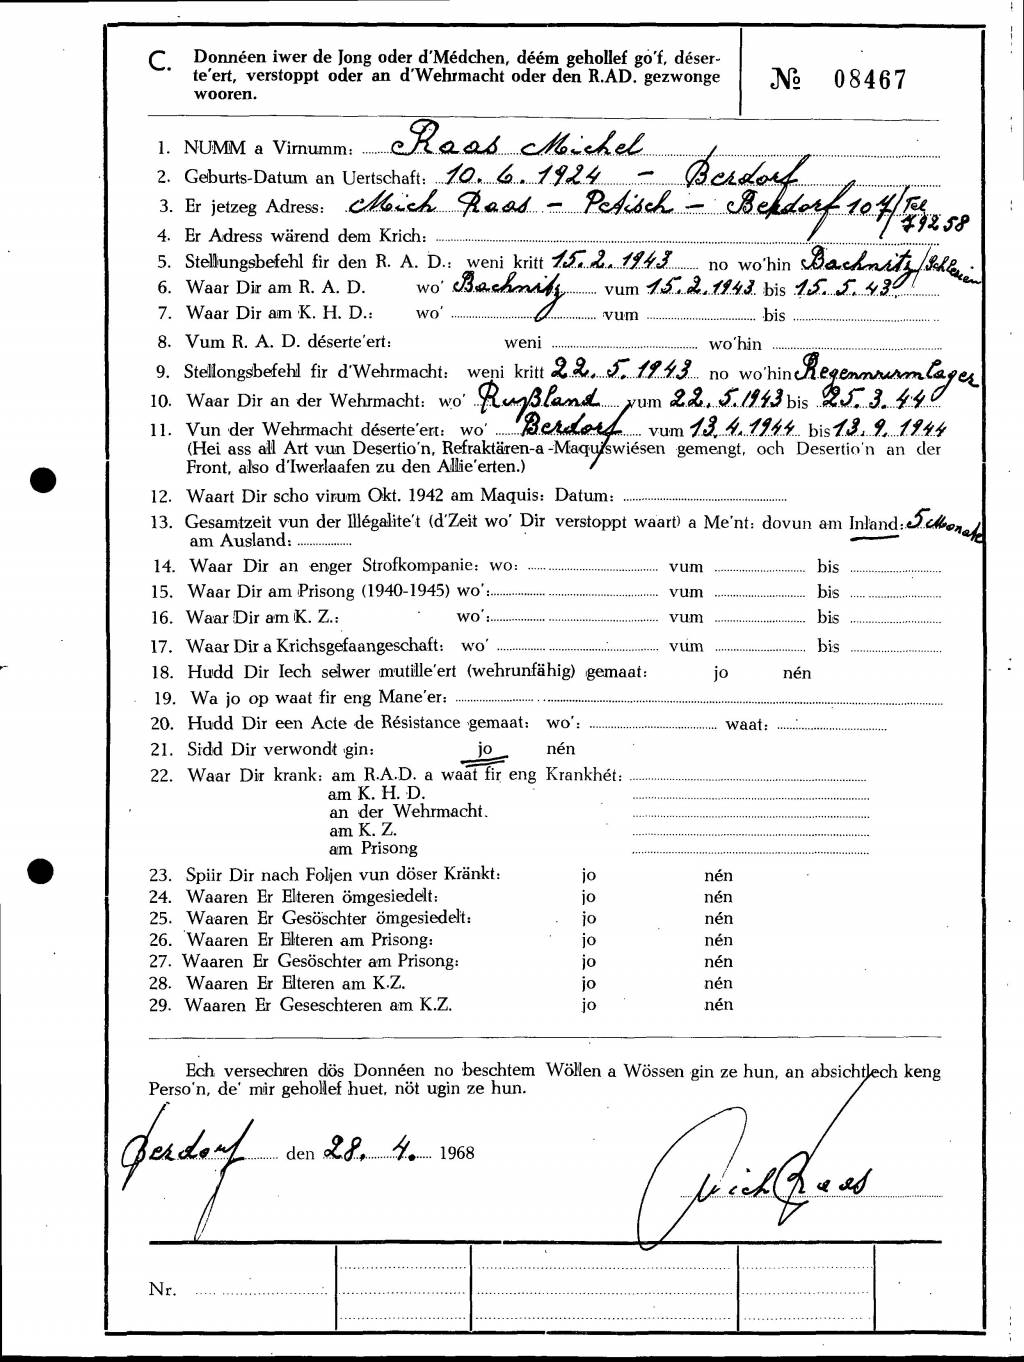 C. Donnéen iwer de Jong oder d'Médchen, déém gehollef go'f, déser-
te'ert, verstoppt oder an d'Wehrmacht oder den R.AD. gezwonge
wooren.
№ 08467
1. NUMM a Virnumm: Raas Michel
2. Geburts-Datum an Uertschaft: 10. 6. 1924 - Berdorf
3. Er jetzeg Adress: Mich Raas - Petisch - Berdorf 107/Tel
79258
4. Er Adress wärend dem Krich:
5. Stellungsbefehl fir den R. A. D.: weni kritt 15.2.1943 no wo'hin Bachnitz/Schlesien
6. Waar Dir am R. A. D. wo' Bachnitz vum 15.2.1943 bis 15. 5. 43.
7. Waar Dir am K. H. D.: wo' vum bis
8. Vum R. A. D. déserte'ert: weni wo'hin
9. Stellongsbefehl fir d'Wehrmacht: weni kritt 22. 5. 1943 no wo'hin Regenwurmlager
10. Waar Dir an der Wehrmacht: wo' Rußland vum 22. 5.1943 bis 25. 3. 44
11. Vun der Wehrmacht déserte'ert: wo' Berdorf vum 13.4.1944 bis 13. 9. 1944
(Hei ass all Art vun Desertio'n, Refraktären-a-Maquiswiésen gemengt, och Desertio'n an der
Front, also d'Iwerlaafen zu den Allie'erten.)
12. Waart Dir scho virum Okt. 1942 am Maquis: Datum:
13. Gesamtzeit vun der Illégalite't (d'Zeit wo' Dir verstoppt waart) a Me'nt: dovun am Inland: 5 Monate
am Ausland:
14. Waar Dir an enger Strofkompanie: wo: vum bis
15. Waar Dir am Prisong (1940-1945) wo': vum bis
16. Waar Dir am K. Z.: wo': vum bis
17. Waar Dir a Krichsgefaangeschaft: wo' vum bis
18. Hudd Dir Iech selwer mutille'ert (wehrunfähig) gemaat: jo nén
19. Wa jo op waat fir eng Mane'er:
20. Hudd Dir een Acte de Résistance gemaat: wo': waat:
21. Sidd Dir verwondt gin: jo nén
22. Waar Dir krank: am R.A.D. a waat fir eng Krankhét:
am K. H. D.
an der Wehrmacht.
am K. Z.
am Prisong
23. Spiir Dir nach Foljen vun döser Kränkt: jo nén
24. Waaren Er Elteren ömgesiedelt: jo nén
25. Waaren Er Gesöschter ömgesiedelt: jo nén
26. Waaren Er Elteren am Prisong: jo nén
27. Waaren Er Gesöschter am Prisong: jo nén
28. Waaren Er Elteren am K.Z. jo nén
29. Waaren Er Geseschteren am K.Z. jo nén
Ech versechren dös Donnéen no beschtem Wöllen a Wössen gin ze hun, an absichtlech keng
Perso'n, de' mir gehollef huet, nöt ugin ze hun.
Berdorf den 28. 4. 1968
Mich Raas
Nr.